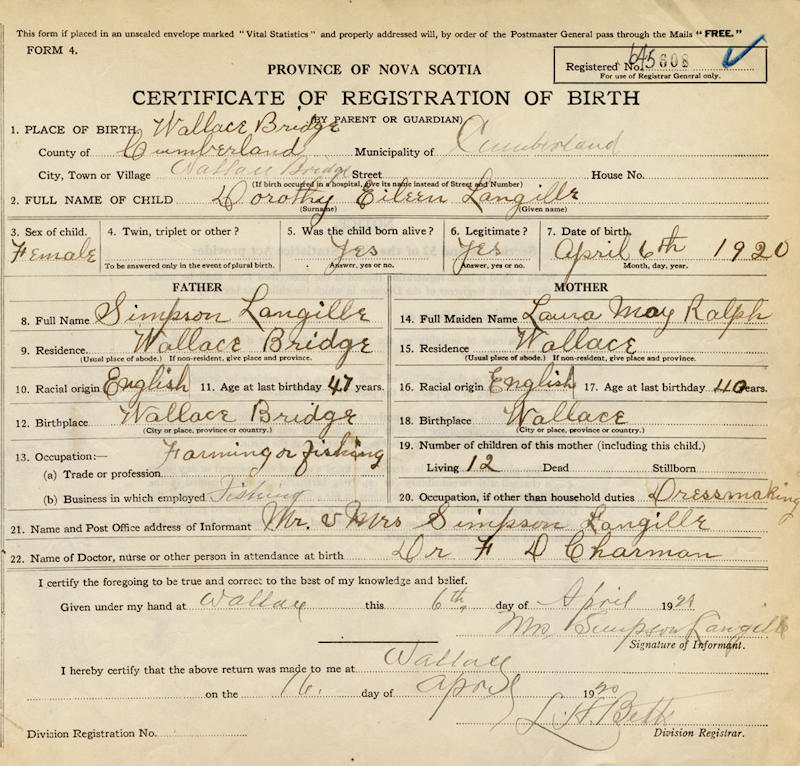 This form if placed in an unsealed envelope marked "Vital Statistics" and properly addressed will, by order of the Postmaster General pass through the Mails "FREE."
FORM 4.
Registered No. 608
For use of Registrar General only.
PROVINCE OF NOVA SCOTIA
CERTIFICATE OF REGISTRATION OF BIRTH
(BY PARENT OR GUARDIAN)
1. PLACE OF BIRTH Wallace Bridge
County of Cumberland Municipality of Cumberland
City, Town or Village Wallace Bridge Street House No.
(If birth occurred in a hospital, give its name instead of Street and Number)
2. FULL NAME OF CHILD Dorothy Eileen Langille
(Surname) (Given name)
3. Sex of child. 4. Twin, triplet or other ? 5. Was the child born alive ? 6. Legitimate ? 7. Date of birth.
Female Yes Yes April 6th 1920
To be answered only in the event of plural birth. Answer, yes or no. Answer, yes or no. Month, day, year.
FATHER
8. Full Name Simpson Langille
9. Residence Wallace Bridge
(Usual place of abode.) If non-resident, give place and province.
10. Racial origin English 11. Age at last birthday 47 years.
12. Birthplace Wallace Bridge
(City or place, province or country.)
13. Occupation:— Farming or fishing
(a) Trade or profession
(b) Business in which employed Fishing
MOTHER
14. Full Maiden Name Laura May Ralph
15. Residence Wallace
(Usual place of abode.) If non-resident, give place and province.
16. Racial origin English 17. Age at last birthday 40 years.
18. Birthplace Wallace
(City or place, province or country.)
19. Number of children of this mother (including this child.)
Living 12 Dead Stillborn
20. Occupation, if other than household duties Dressmaking
21. Name and Post Office address of Informant Mr. & Mrs Simpson Langille
22. Name of Doctor, nurse or other person in attendance at birth Dr F D Charman
I certify the foregoing to be true and correct to the best of my knowledge and belief.
Given under my hand at Wallace this 6th day of April 192
Mrs Simpson Langille
Signature of Informant.
I hereby certify that the above return was made to me at Wallace
on the 16 day of April 1920
L. H. Betts
Division Registrar.
Division Registration No.